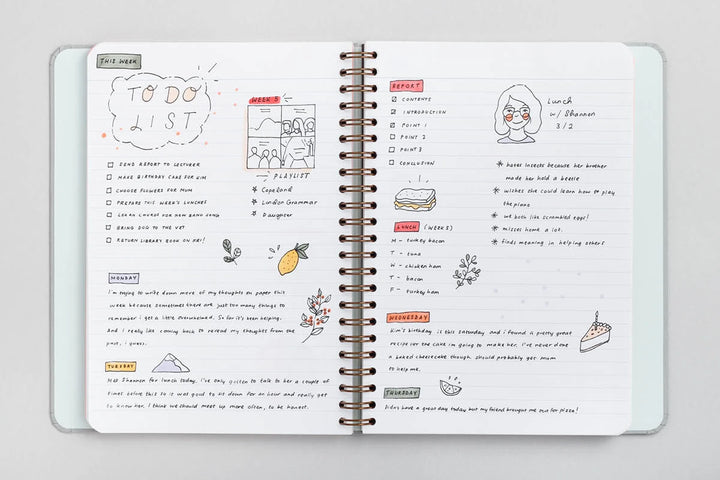 THIS WEEK
TO DO
LIST
SEND REPORT TO LECTURER
MAKE BIRTHDAY CAKE FOR KIM
CHOOSE FLOWERS FOR MUM
PREPARE THIS WEEK'S LUNCHES
LEARN CHORDS FOR NEW BAND SONG
BRING DOG TO THE VET
RETURN LIBRARY BOOK ON FRI!
WEEK 5
PLAYLIST
Copeland
London Grammar
Daughter
MONDAY
I'm trying to write down more of my thoughts on paper this
week because sometimes there are just too many things to
remember I get a little overwhelmed. So far it's been helping.
And I really like coming back to reread my thoughts from the
past, I guess.
TUESDAY
Met Shannon for lunch today. I've only gotten to talk to her a couple of
times before this so it was good to sit down for an hour and really get
to know her. I think we should meet up more often, to be honest.
REPORT
CONTENTS
INTRODUCTION
POINT 1
POINT 2
POINT 3
CONCLUSION
Lunch
w/ Shannon
3/2
hates insects because her brother
made her hold a beetle
wishes she could learn how to play
the piano
we both like scrambled eggs!
misses home a lot.
finds meaning in helping others
LUNCH (WEEK 5)
M - turkey bacon
T - tuna
W - chicken ham
T - bacon
F - turkey ham
WEDNESDAY
Kim's birthday is this saturday and I found a pretty great
recipe for the cake I'm going to make her. I've never done
a baked cheesecake though. Should probably get mum
to help me.
THURSDAY
Didn't have a great day today but my friend brought me out for pizza!